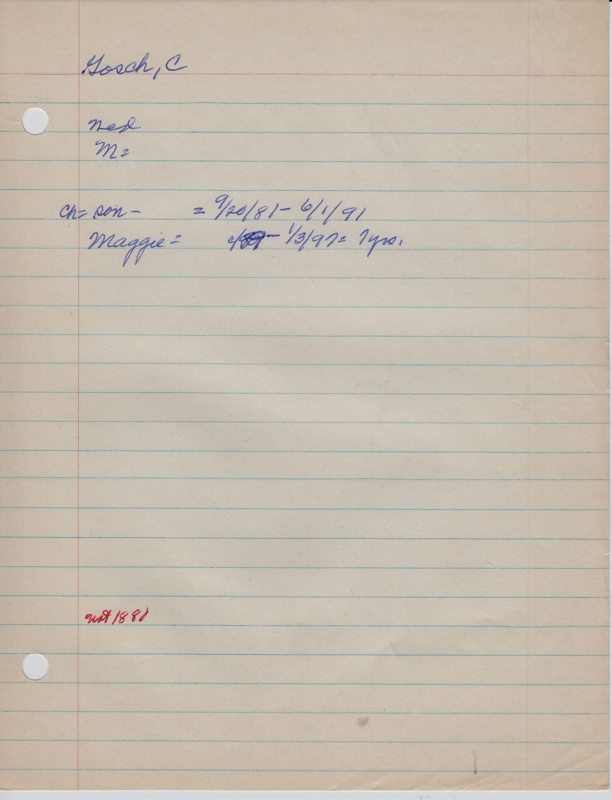 Gosch, C
ned
M=
ch= son- = 9/20/81- 6/1/91
Maggie= c/89- 1/3/97= 7yrs.
not 1880